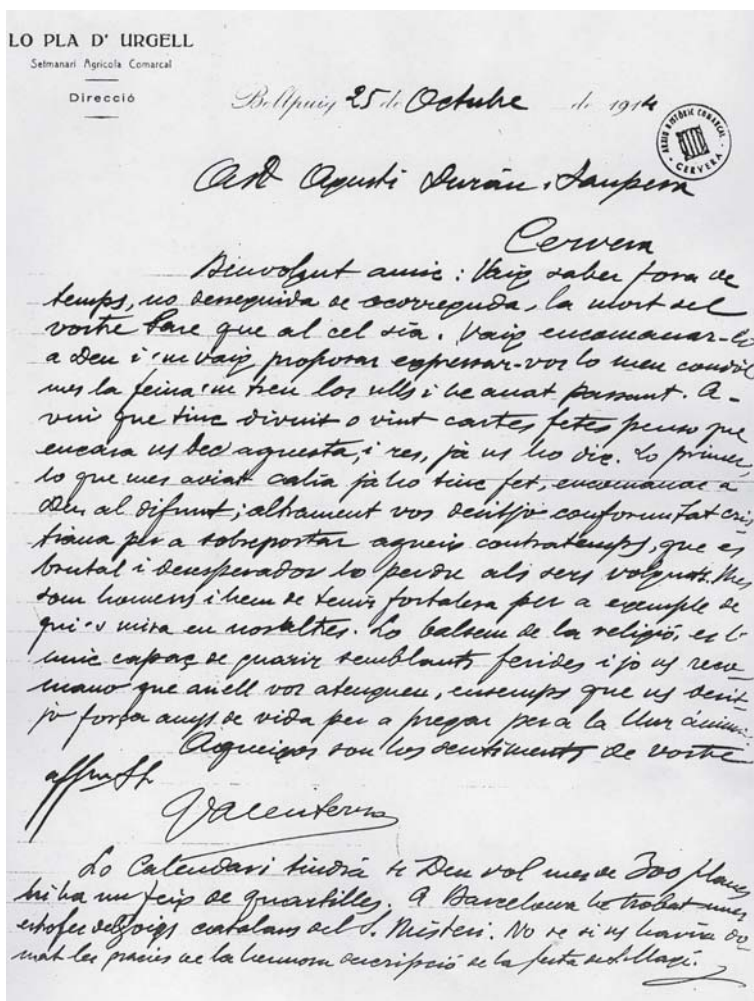 LO PLA D' URGELL
Setmanari Agrícola Comarcal
Direcció
Bellpuig 25 de Octubre de 1914
ARXIU HISTÒRIC COMARCAL · CERVERA ·
Agustí Durán i Sanpera
Cervera
Benvolgut amic: Vaig saber fora de
temps, no desseguida de ocorreguda, la mort del
vostre Pare que al cel sía. Vaig encomanar-lo
a Deu i 'm vaig proposar expressar-vos lo meu condol
mes la feina 'm treu los ulls i he anat passant. A-
vui que tinc divuit o vint cartes fetes penso que
encara us dec aquesta, i res, jà us ho dic. Lo primer,
lo que mes aviat calía jà ho tinc fet, encomanar a
Deu al difunt; altrament vos desitjo conformitat cris
tiana per a sobreportar aqueis contratemps, que es
brutal i desesperador lo perdre als sers volguts. Mes
som homens i hem de tenir fortalesa per a exemple de
qui 's mira en nosaltres. Lo balsem de la religió, es l'
unic capaç de guarir semblants ferides i jo us reco-
mano que an ell vos atengueu, ensemps que us desit
jo força anys de vida per a pregar per a la llur ánima.
Aqueixos son los sentiments de vostre
affm
Valenterra
Lo Calendari tindrá si Deu vol mes de 300 planes
hi ha un feix de quartilles. A Barcelona he trobat unes
estrofes de goigs catalans del S. Misteri. No se si us havía do
nat les gracies de la hermosa descripció de la festa de S. Magí.